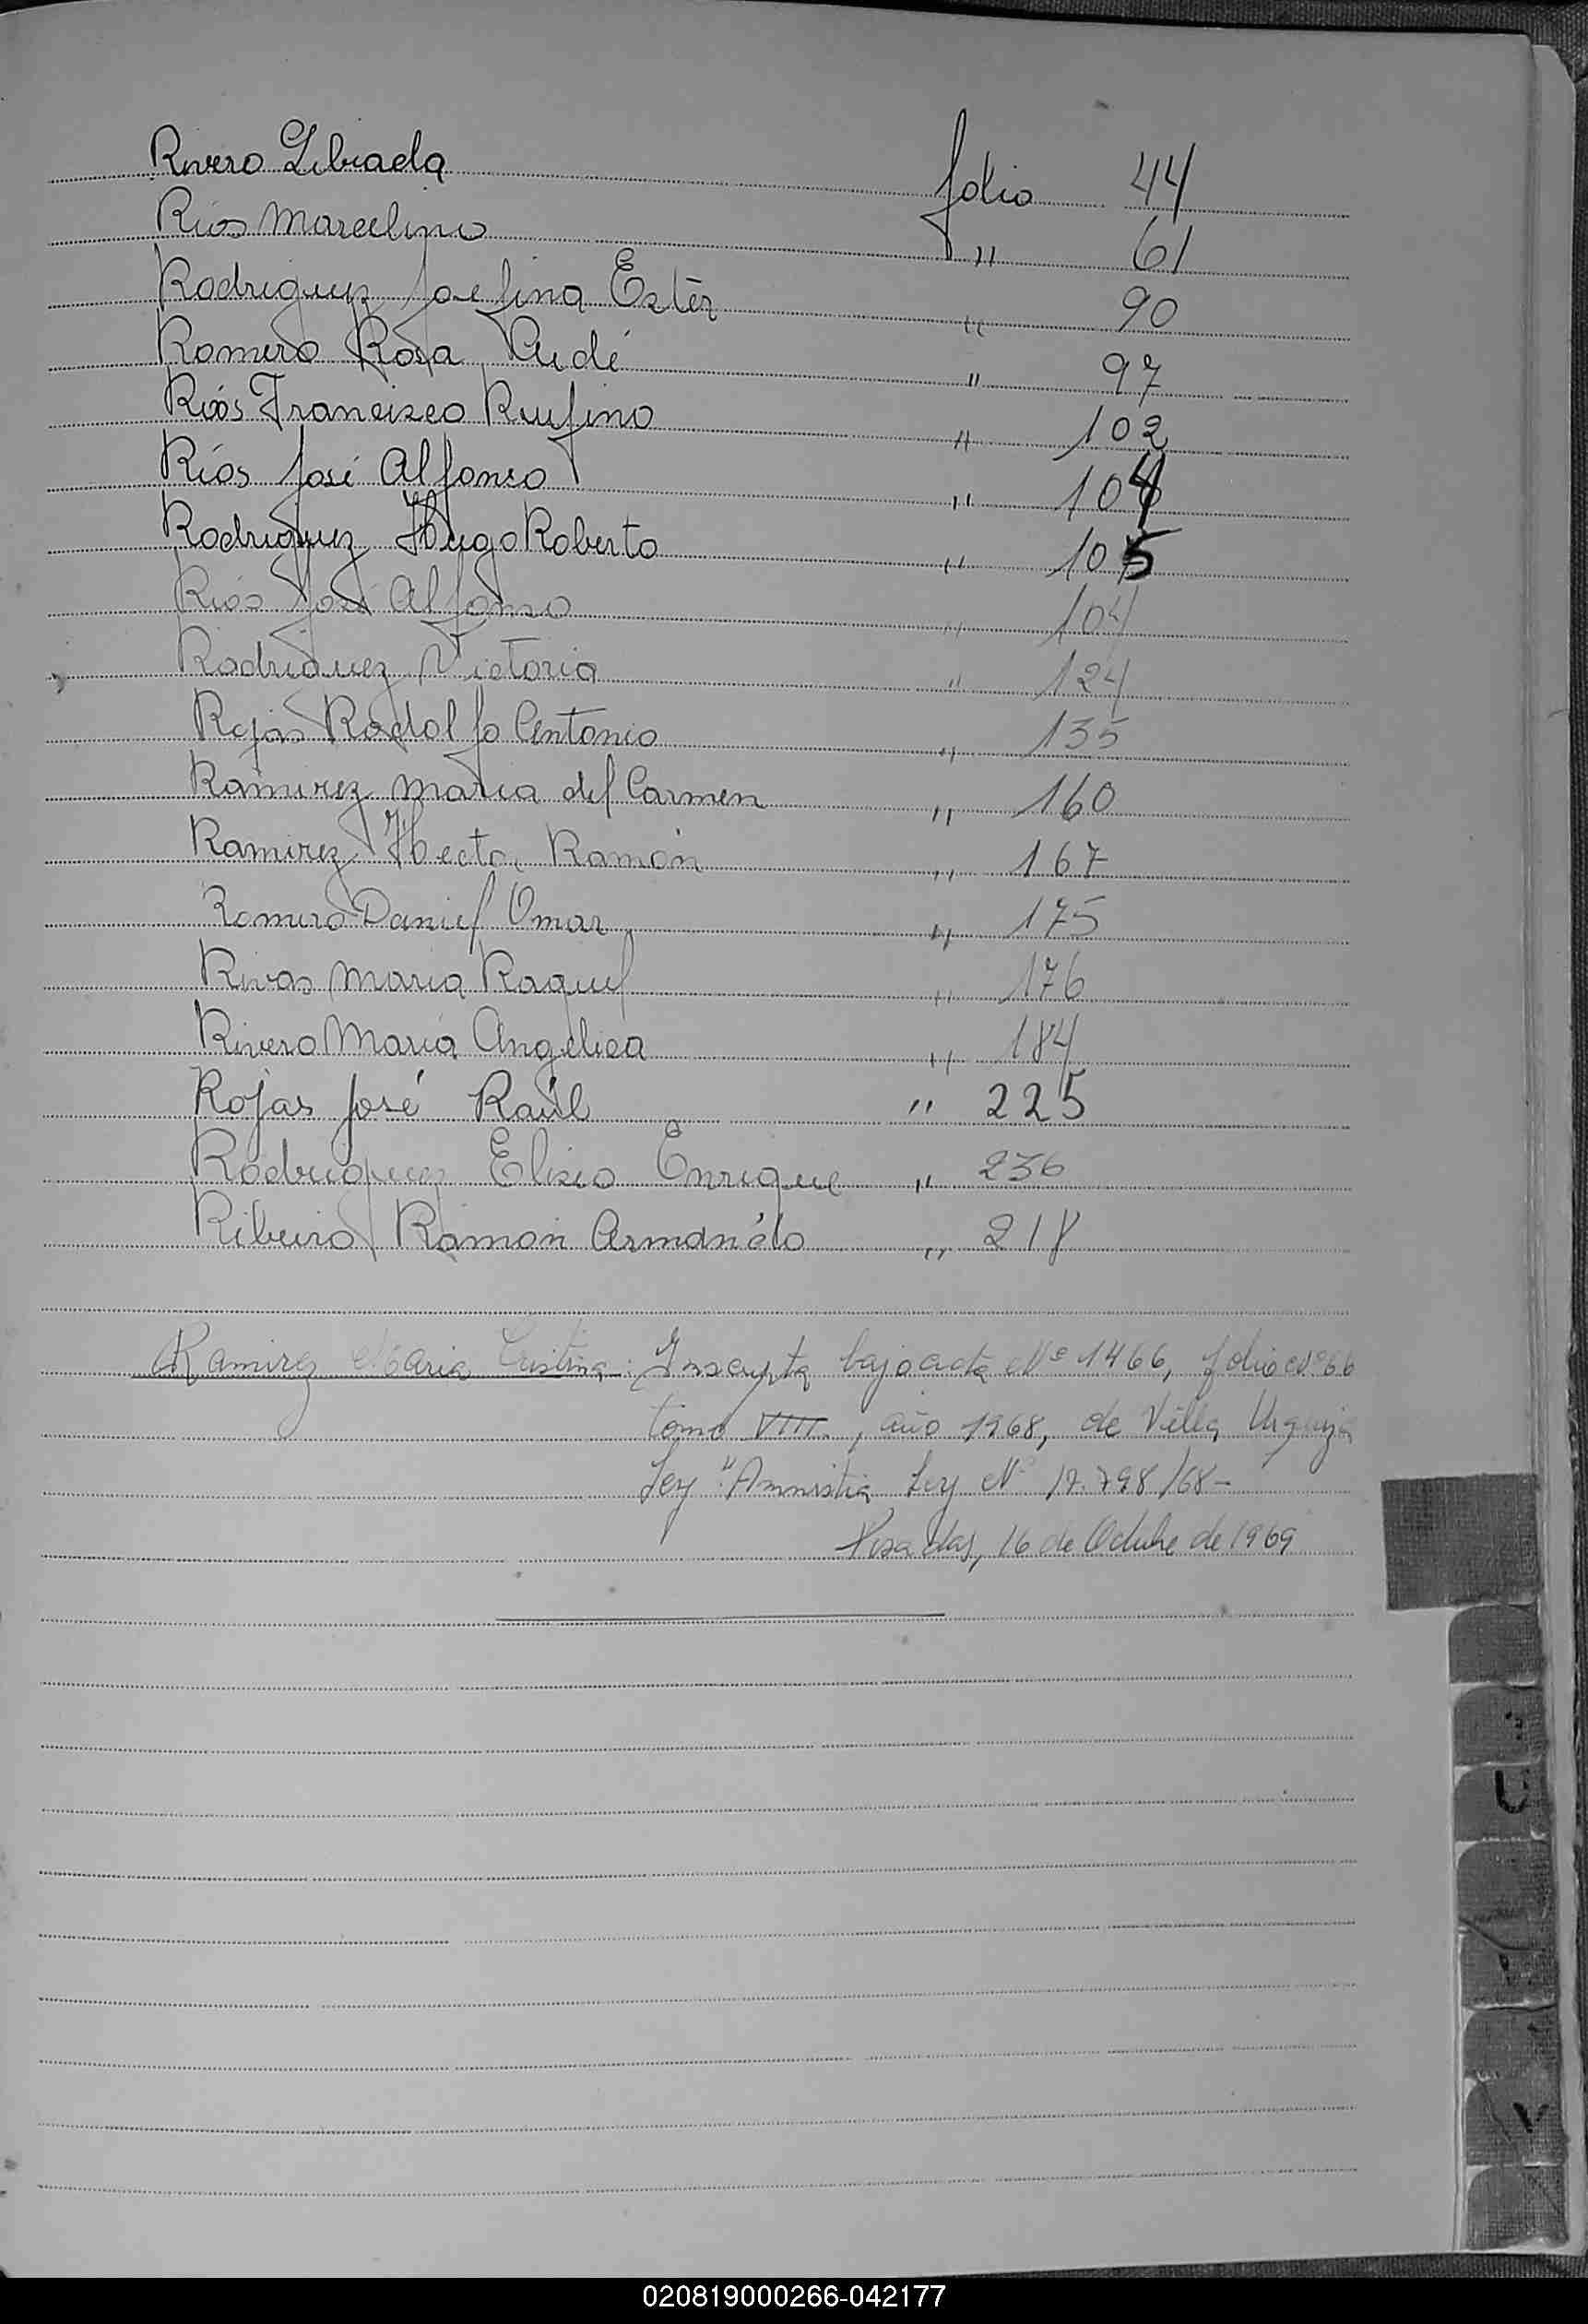 Rivero Librada folio 44
Ríos Marcelino " 61
Rodriguez Josefina Estér " 90
Romero Rosa Aidé " 97
Ríos Francisco Rufino " 102
Ríos José Alfonso " 104
Rodriguez Hugo Roberto " 105
Ríos José Alfonso " 104
Rodriguez Victoria " 124
Rojas Rodolfo Antonio " 135
Ramirez Maria del Carmen " 160
Ramirez Hector Ramón " 167
Romero Daniel Omar " 175
Rivas Maria Raquel " 176
Rivero María Angelica " 184
Rojas José Raúl " 225
Rodriguez Eliseo Enrique " 236
Ribeiro Ramón Armando " 218
Ramirez Maria Cristina: Inscripta bajo acta Nº 1466, folio Nº 66
tomo VIII, año 1968, de Villa Urquiza
Ley "Amnistia Ley Nº 17.798/68-
Posadas, 16 de Octubre de 1969
U
V
020819000266-042177